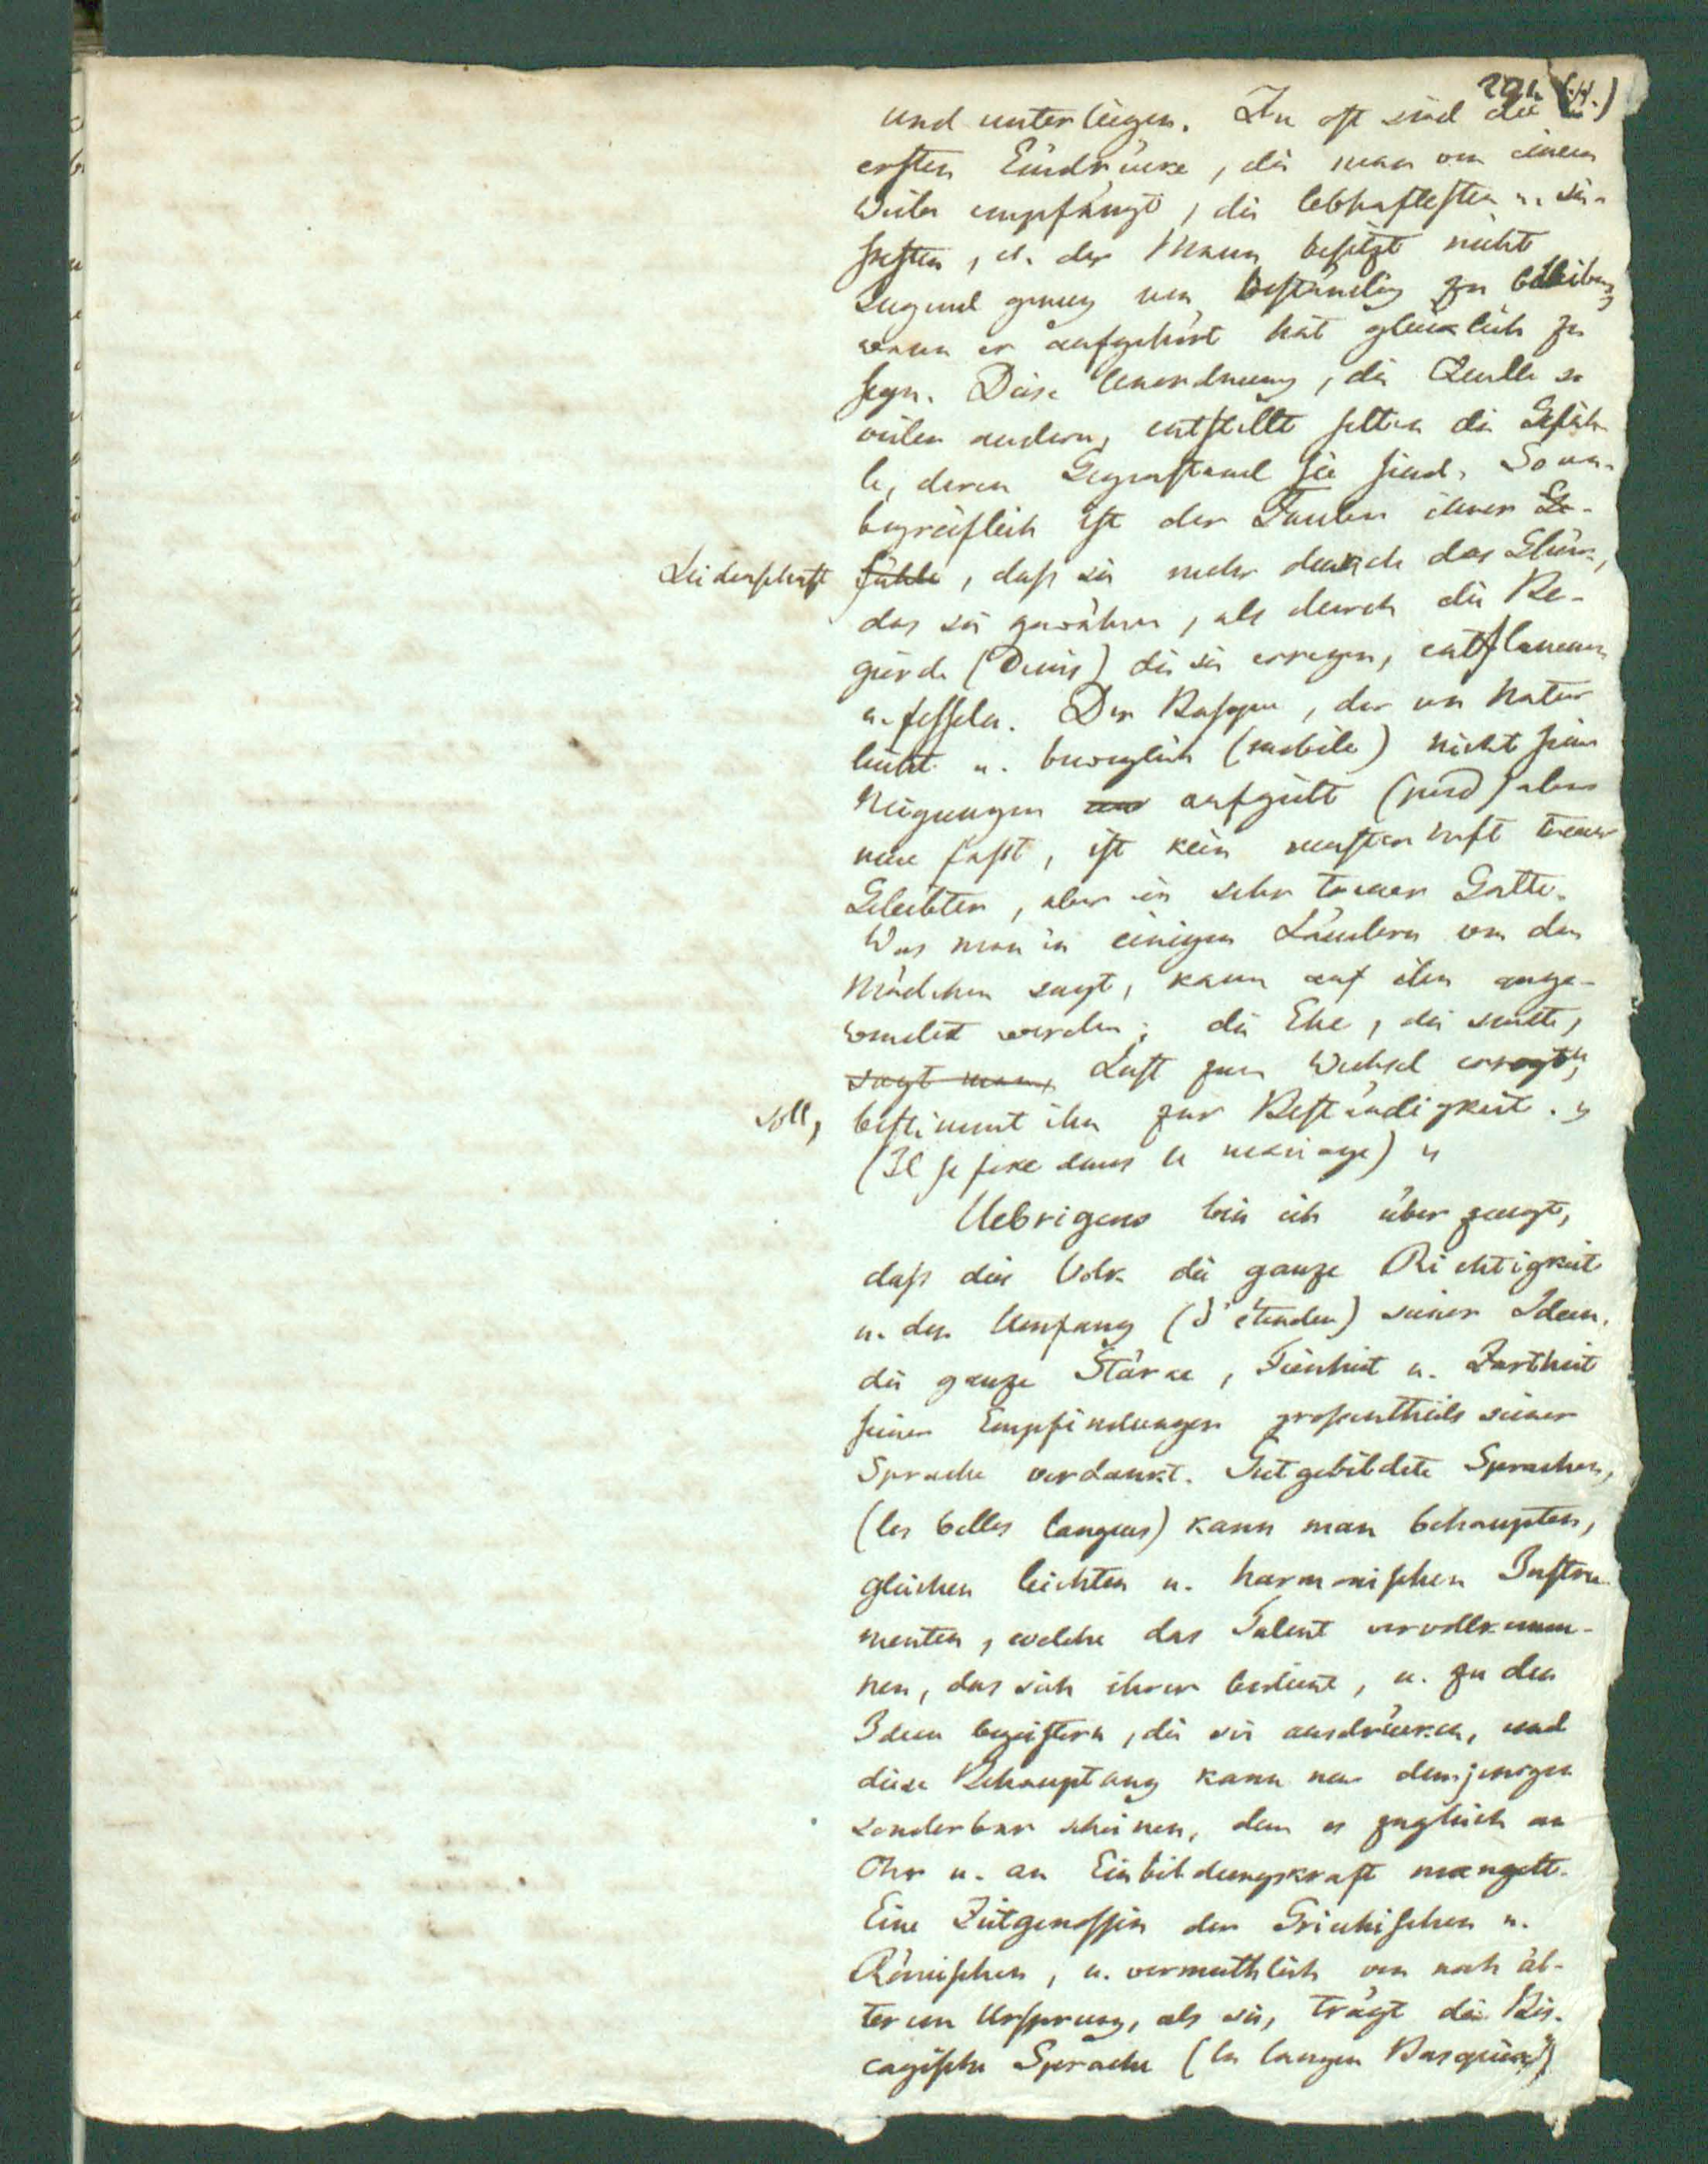 201. (14.)
und unterliegen. Zu oft sind die
ersten Eindrücke, die man von einem
Weibe empfängt, die lebhaftesten u. sü-
ssesten, u. der Mann besitzt nicht
Tugend genug um beständig zu bleiben,
wenn er aufgehört hat glücklich zu
seyn. Diese Unordnung, die Quelle so
vieler andern, entstellt selten die Gefüh-
le, deren Gegenstand sie sind. So un-
begreiflich ist der Zauber ihrer Ge-
Leidenschaft fühle, dass sie mehr durch das Glück,
das sie gewähren, als durch die Be-
gierde (Desirs) die sie erregen, entflammen
u. fesseln. Der Basque, der von Natur
leicht u. beweglich (mobile) nicht seine
Neigungen aufgiebt (perd) aber
neue fasst, ist kein musterhaft treuer
Geliebter, aber ein sehr treuer Gatte.
Was man in einigen Ländern von den
Mädchen sagt, kann auf ihn ange-
wendet werden; die Ehe, die sonst,
sagt man, Lust zum Wechsel erregen
soll, bestimmt ihn zur Beständigkeit. "
(Il se fixe dans le mariage) "
Uebrigens bin ich überzeugt,
dass dies Volk die ganze Richtigkeit
u. den Umfang (d'étendue) seiner Ideen,
die ganze Stärke, Feinheit u. Zartheit
seiner Empfindungen grossentheils seiner
Sprache verdankt. Gutgebildete Sprachen,
(les belles langues) kann man behaupten,
gleichen leichten u. harmonischen Instru-
menten, welche das Talent vervollkomm-
nen, das sich ihrer bedient, u. zu den
Ideen begeistern, die sie ausdrücken, und
diese Behauptung kann nur demjenigen
sonderbar scheinen, dem es zugleich an
Ohr u. an Einbildungskraft mangelt.
Eine Zeitgenossin der Griechischen u.
Römischen, u. vermuthlich von noch äl-
terem Ursprung, als sie, trägt die Bis-
cayische Sprache (la langue Basque)